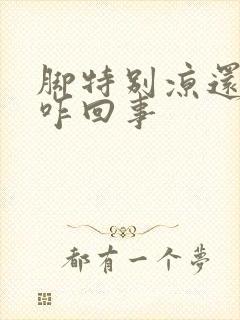 脚特别凉還
咋回事
都有一个夢